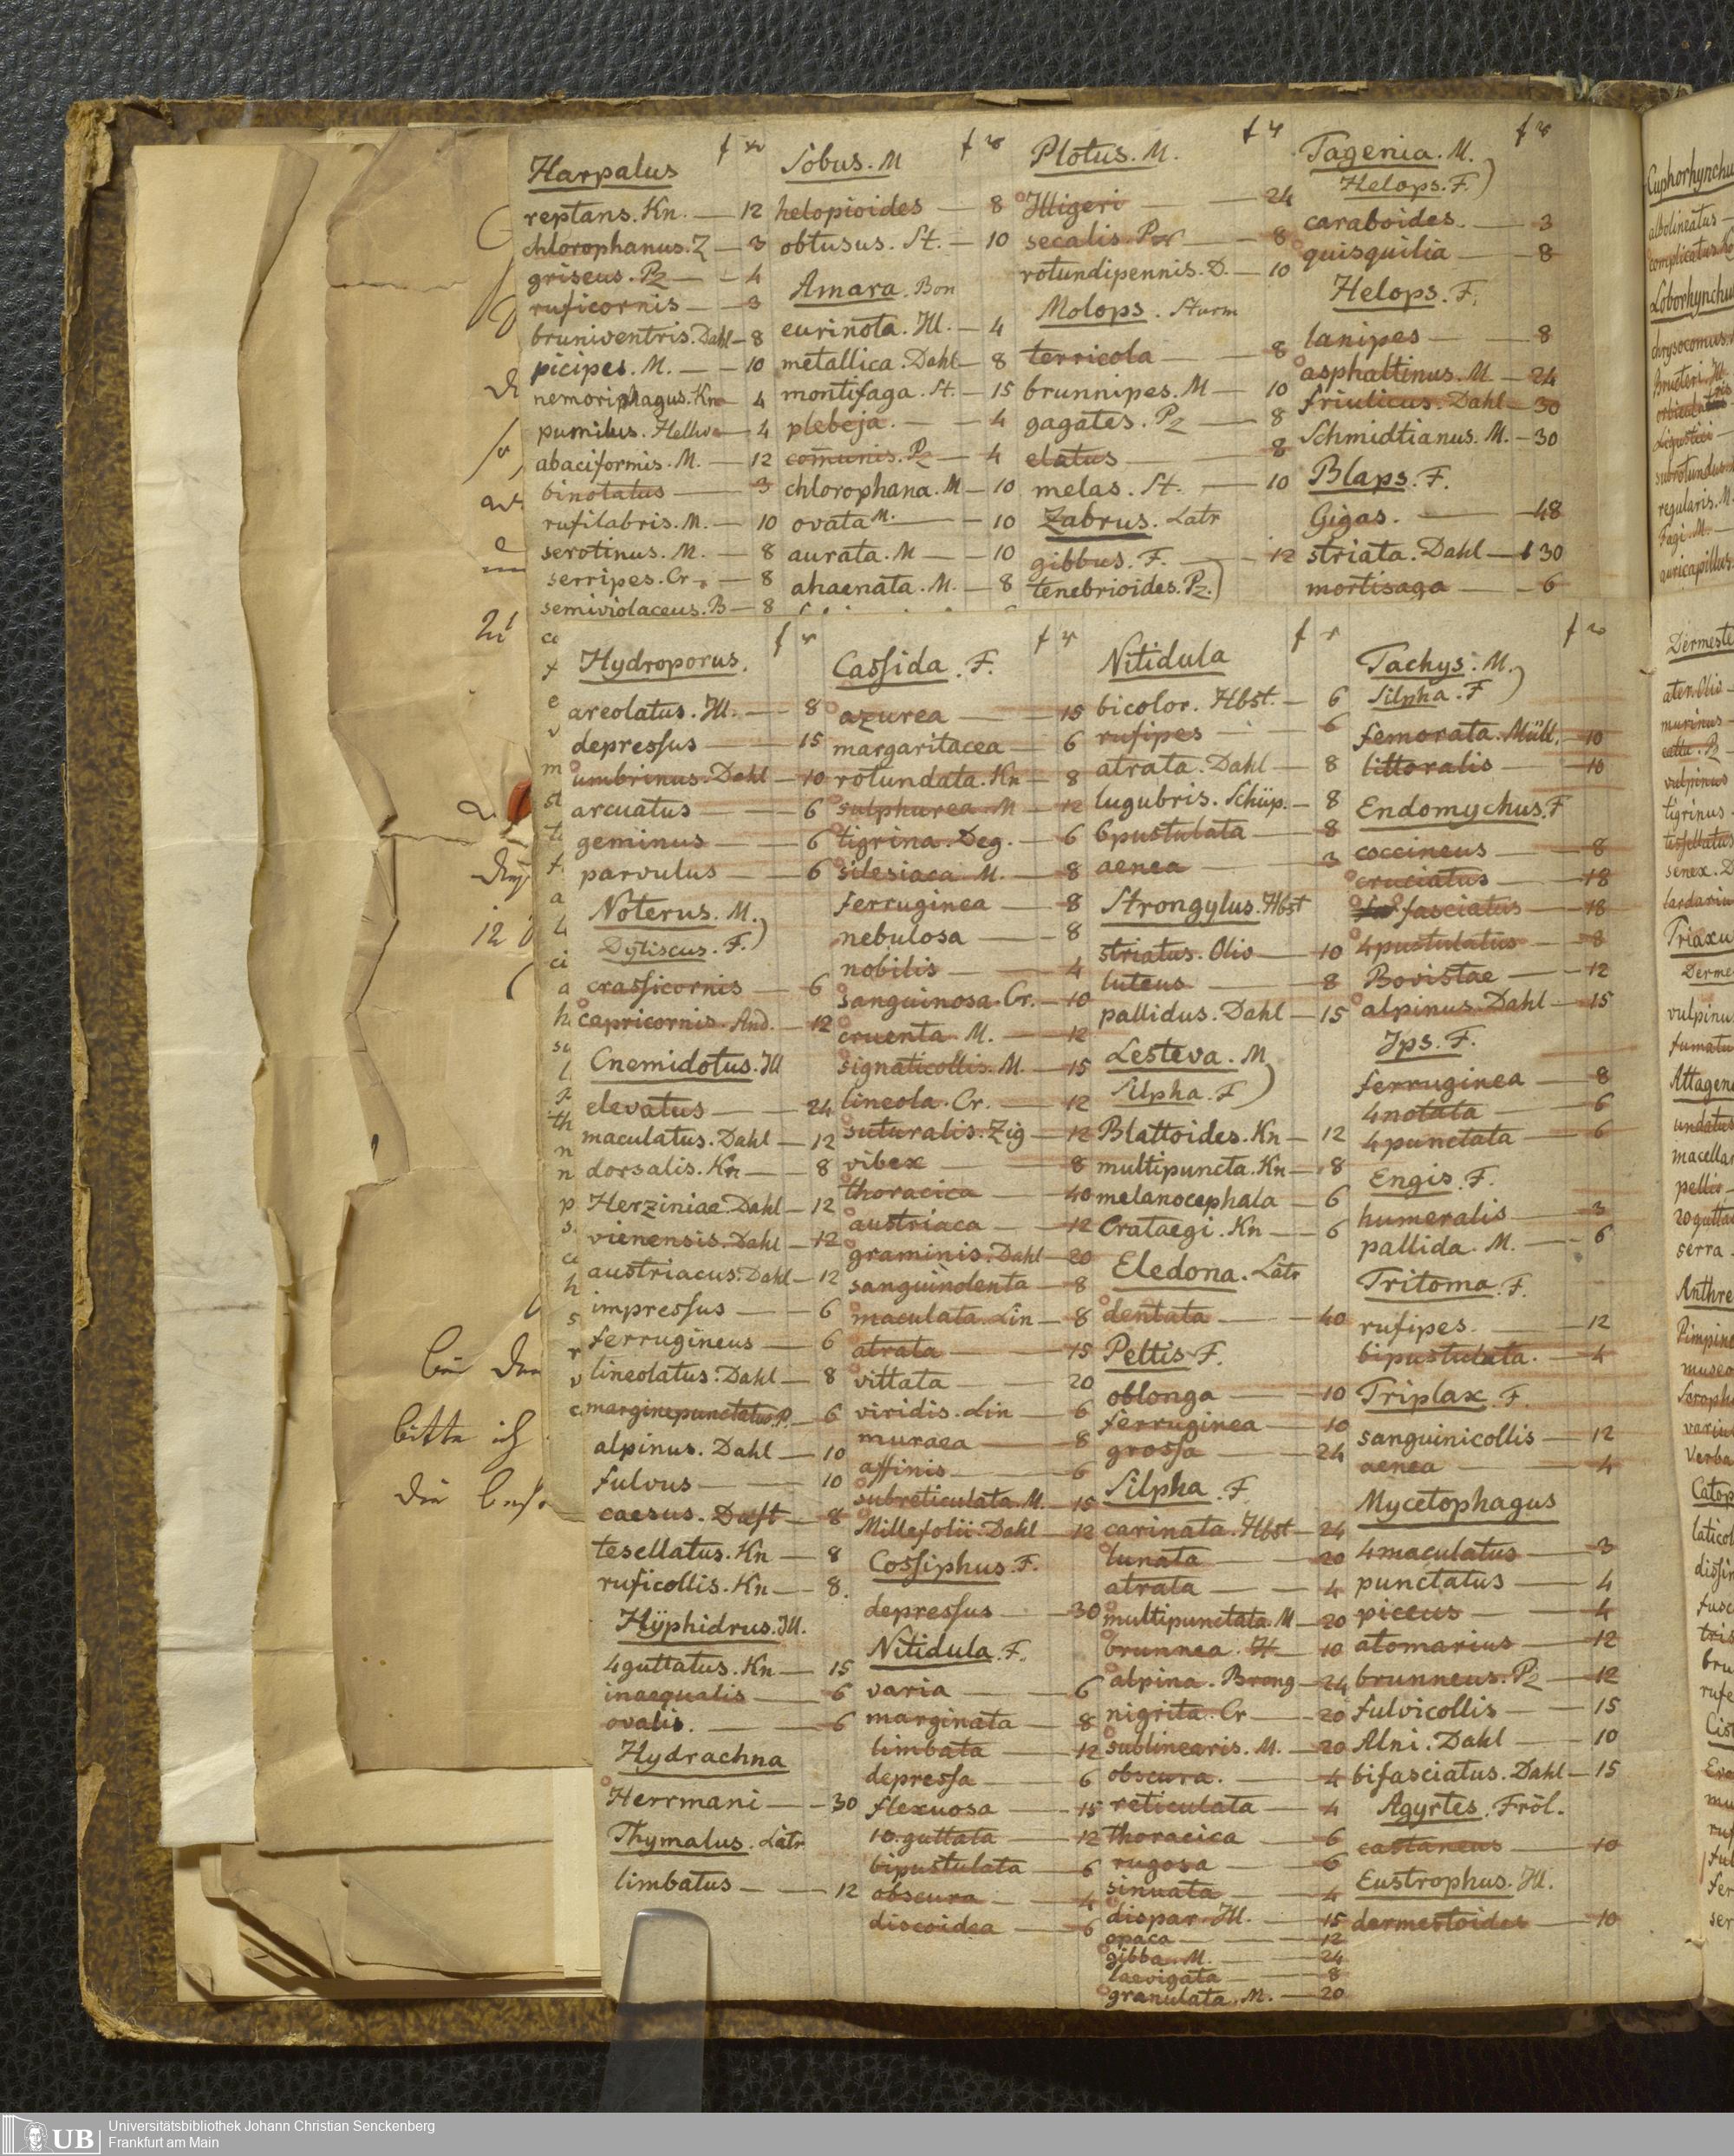 Harpalus
reptans. Kn. — 12
chlorophanus. Z — 3
griseus. Pz — 4
ruficornis — 3
bruniventris. Dahl — 8
picipes. M. — 10
nemoriphagus. Kn — 4
pumilus. Hellw — 4
abaciformis. M. — 12
binotatus — 3
rufilabris. M. — 10
serotinus. M. — 8
serripes. Cr. — 8
semiviolaceus. B — 8
Sobus. M
helopioides — 8
obtusus. St. — 10
Amara. Bon
eurinota. Ill. — 4
metallica. Dahl — 8
montifaga. St. — 15
plebeja. — 4
comunis. Pz — 4
chlorophana. M — 10
ovata M. — 10
aurata. M — 10
ahaenata. M. — 8
Plotus. M.
Illigeri — 24
secalis. Pz — 8
rotundipennis. D. — 10
Molops. Sturm
terricola — 8
brunnipes. M — 10
gagates. Pz — 8
elatus — 8
melas. St. — 10
Zabrus. Latr
gibbus. F. — 12
tenebrioides. Pz.)
Tagenia. M.
Helops. F.)
caraboides. — 3
quisquilia — 8
Helops. F.
lanipes — 8
asphaltinus. M — 24
friulicus. Dahl — 30
Schmidtianus. M. — 30
Blaps. F.
Gigas. — 48
striata. Dahl — 30
mortisaga — 6
Hydroporus.
areolatus. Ill. — 8
depressus — 15
umbrinus. Dahl — 10
arcuatus — 6
geminus — 6
parvulus — 6
Noterus. M.)
Dytiscus. F.)
crassicornis — 6
capricornis. And. — 12
Cnemidotus. Ill
elevatus — 24
maculatus. Dahl — 12
dorsalis. Kn — 8
Herziniae. Dahl — 12
vienensis. Dahl — 12
austriacus. Dahl — 12
impressus — 6
ferrugineus — 6
lineolatus. Dahl — 8
marginepunctatus. P. — 6
alpinus. Dahl — 10
fulvus — 10
caesus. Duft — 8
tesellatus. Kn — 8
ruficollis. Kn — 8.
Hÿphidrus. Ill.
4guttatus. Kn — 15
inaequalis — 6
ovalis. — 6
Hydrachna
Herrmani — 30
Thymalus. Latr
limbatus — 12
Cassida. F.
azurea — 15
margaritacea — 6
rotundata. Kn — 8
sulphurea. M — 12
tigrina. Deg. — 6
silesiaca. M. — 8
ferruginea — 8
nebulosa — 8
nobilis — 4
sanguinosa. Cr. — 10
cruenta. M. — 12
signaticollis. M. — 15
lineola. Cr. — 12
suturalis. Zig — 12
vibex — 8
thoracica — 40
austriaca — 12
graminis. Dahl — 20
sanguinolenta — 8
maculata. Lin — 8
atrata — 15
vittata — 20
viridis. Lin — 6
muraea — 8
affinis — 6
subreticulata. M. — 15
Millefolii. Dahl — 12
Cossiphus. F.
depressus — 30
Nitidula. F.
varia — 6
marginata — 8
limbata — 12
depressa — 6
flexuosa — 15
10.guttata — 12
bipustulata — 6
obscura — 4
discoidea — 6
Nitidula
bicolor. Hbst. — 6
rufipes — 6
atrata. Dahl — 8
lugubris. Schüp. — 8
6pustulata — 8
aenea — 3
Strongylus. Hbst
striatus. Oliv — 10
luteus — 8
pallidus. Dahl — 15
Lesteva. M
Silpha. F)
Blattoides. Kn — 12
multipuncta. Kn — 8
melanocephala — 6
Crataegi. Kn — 6
Eledona. Latr
dentata — 40
Peltis F.
oblonga — 10
ferruginea — 10
grossa — 24
Silpha. F
carinata. Hbst — 24
lunata — 20
atrata — 4
multipunctata. M — 20
brunnea. H — 10
alpina. Brong — 24
nigrita. Cr — 20
sublinearis. M. — 20
obscura. — 4
reticulata — 4
thoracica — 6
rugosa — 6
sinuata — 4
dispar. Ill. — 15
opaca — 12
gibba. M. — 24
laevigata — 8
granulata. M. — 20
Tachys. M.)
Silpha. F)
femorata. Müll. — 10
littoralis — 10
Endomychus. F
coccineus — 8
cruciatus — 18
fasciatus — 18
4pustulatus — 8
Bovistae — 12
alpinus. Dahl — 15
Ips. F.
ferruginea — 8
4notata — 6
4punctata — 6
Engis. F.
humeralis — 3
pallida. M. — 6
Tritoma. F.
rufipes. — 12
bipustulata. — 4
Triplax. F.
sanguinicollis — 12
aenea — 4
Mycetophagus
4maculatus — 3
punctatus — 4
piceus — 4
atomarius — 12
brunneus. Pz — 12
fulvicollis — 15
Alni. Dahl — 10
bifasciatus. Dahl — 15
Agyrtes. Fröl.
castaneus — 10
Eustrophus. Ill.
dermestoides — 10
bitte ich
UB
Universitätsbibliothek Johann Christian Senckenberg
Frankfurt am Main